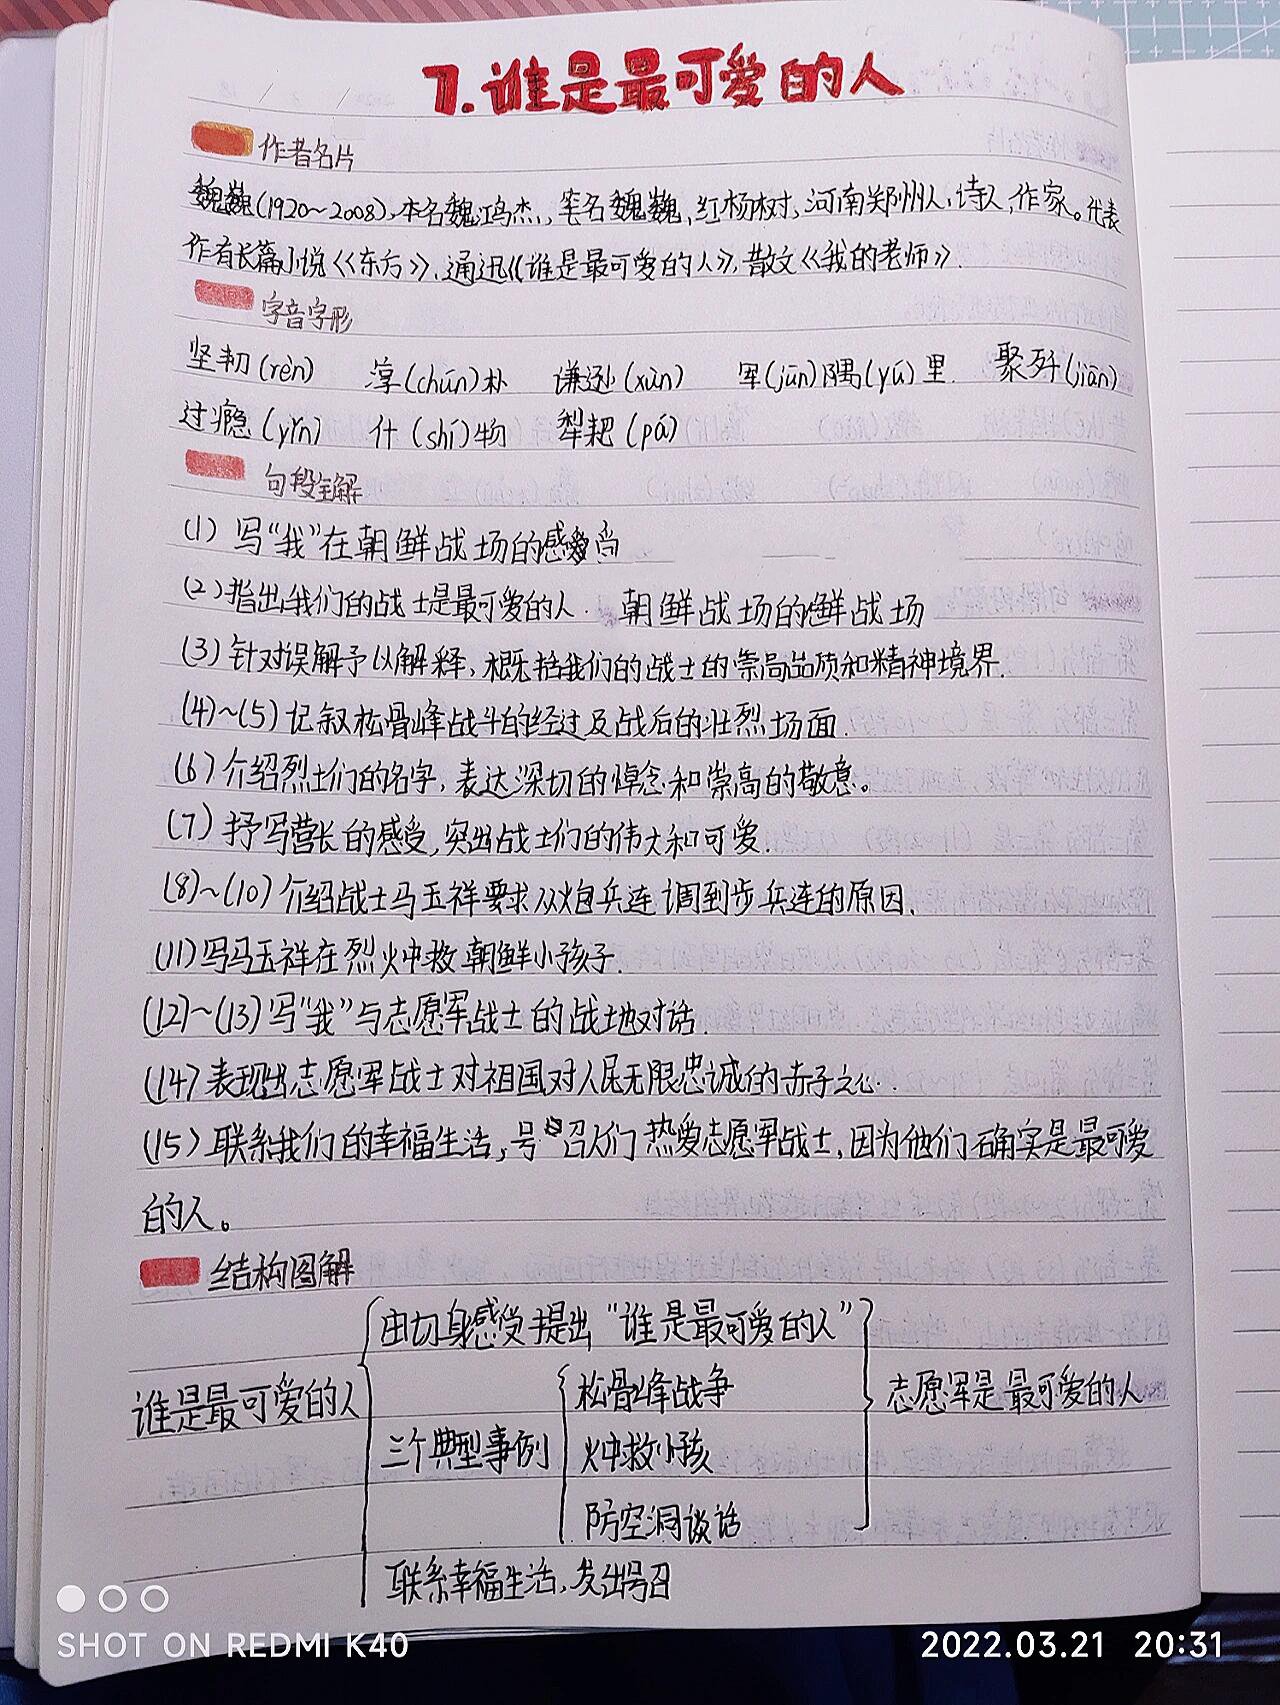 7.谁是最可爱的人
作者名片
魏巍(1920~2008),本名魏鸿杰,笔名魏巍,红杨树,河南郑州人,诗人,作家。代表
作有长篇小说《东方》,通迅《谁是最可爱的人》,散文《我的老师》.
字音字形
坚韧(rèn) 淳(chún)朴 谦逊(xùn) 军(jūn)隅(yú)里. 聚歼(jiān)
过瘾(yǐn) 什(shí)物 犁耙(pá)
句段全解
(1)写“我”在朝鲜战场的感受尚
(2)指出我们的战士是最可爱的人. 朝鲜战场的鲜战场
(3)针对误解予以解释,概括我们的战士的崇高品质和精神境界.
(4)~(5)记叙松骨峰战斗的经过及战后的壮烈场面.
(6)介绍烈士们的名字,表达深切的悼念和崇高的敬意。
(7)抒写营长的感受,突出战士们的伟大和可爱.
(8)~(10)介绍战士马玉祥要求从炮兵连调到步兵连的原因.
(11)写马玉祥在烈火中救朝鲜小孩子.
(12)~(13)写“我”与志愿军战士的战地对话.
(14)表现出志愿军战士对祖国对人民无限忠诚的赤子之心.
(15)联系我们的幸福生活,号召人们热爱志愿军战士,因为他们确实是最可爱
的人。
结构图解
由切身感受提出“谁是最可爱的人”
松骨峰战争
谁是最可爱的人 志愿军是最可爱的人
三个典型事例 火中救小孩
防空洞谈话
联系幸福生活,发出号召
SHOT ON REDMI K40
2022.03.21 20:31